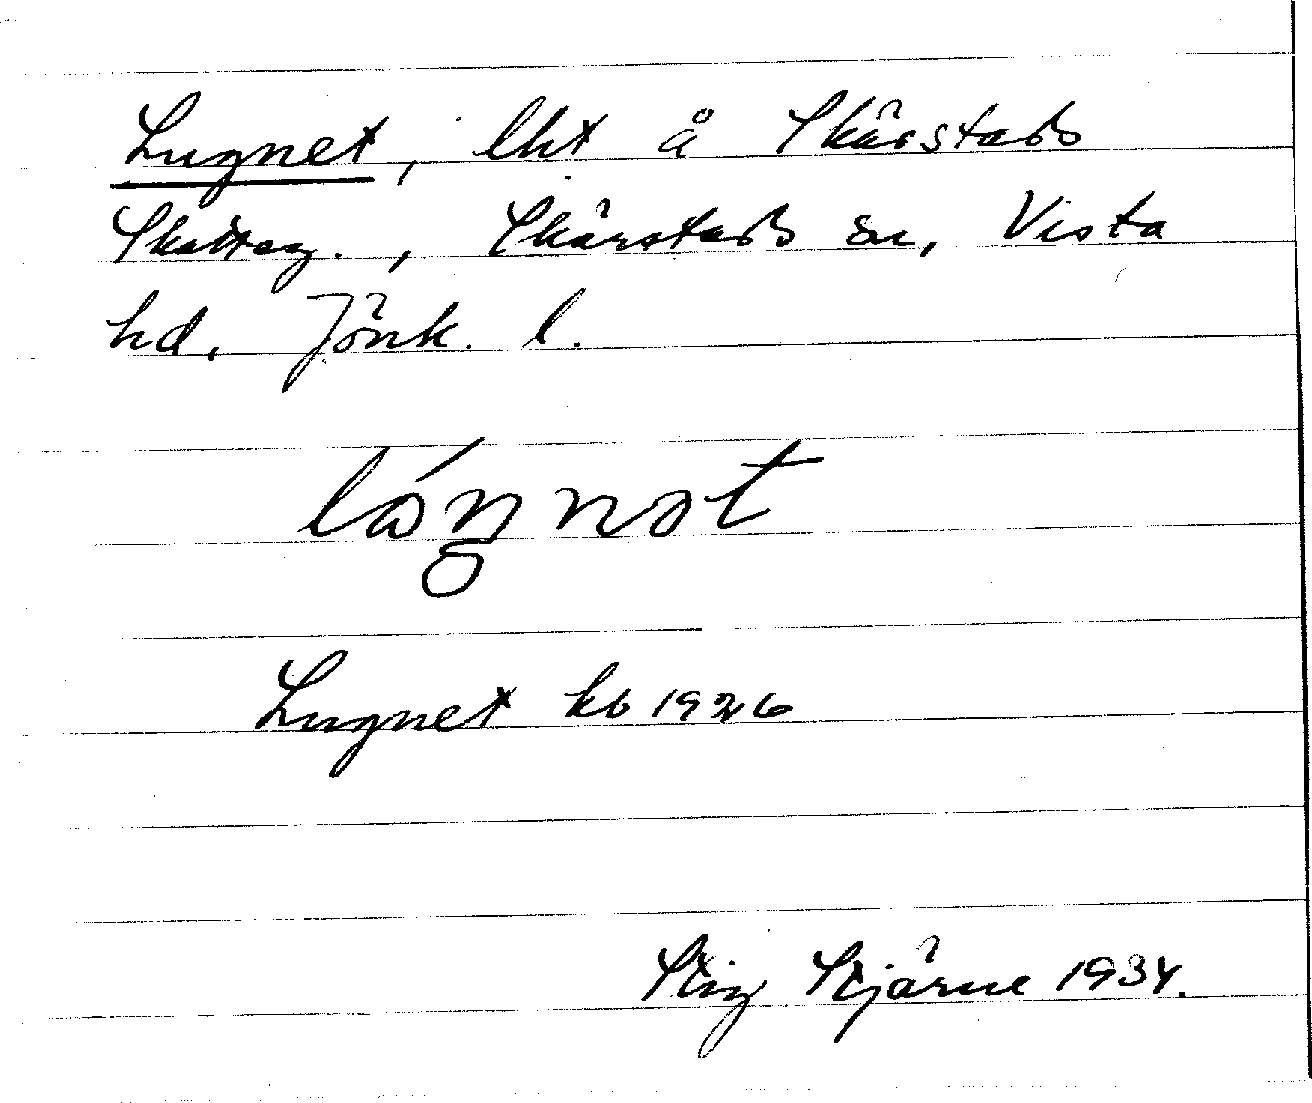 Lugnet, lht å Skärstads
Skatteg., Skärstads sn, Vista
hd. Jönk. l.
lóŋnət
Lugnet kb 1926
Stig Stjärne 1934.